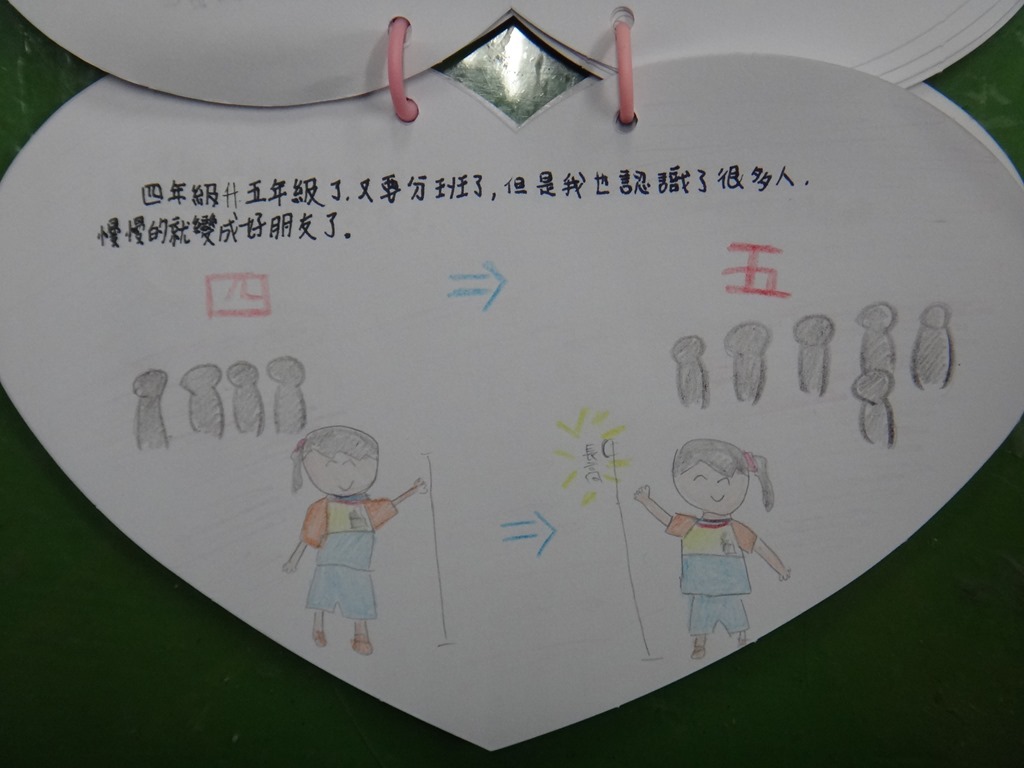 四年級升五年級了.又要分班了,但是我也認識了很多人.
慢慢的就變成好朋友了。
四 五
長高